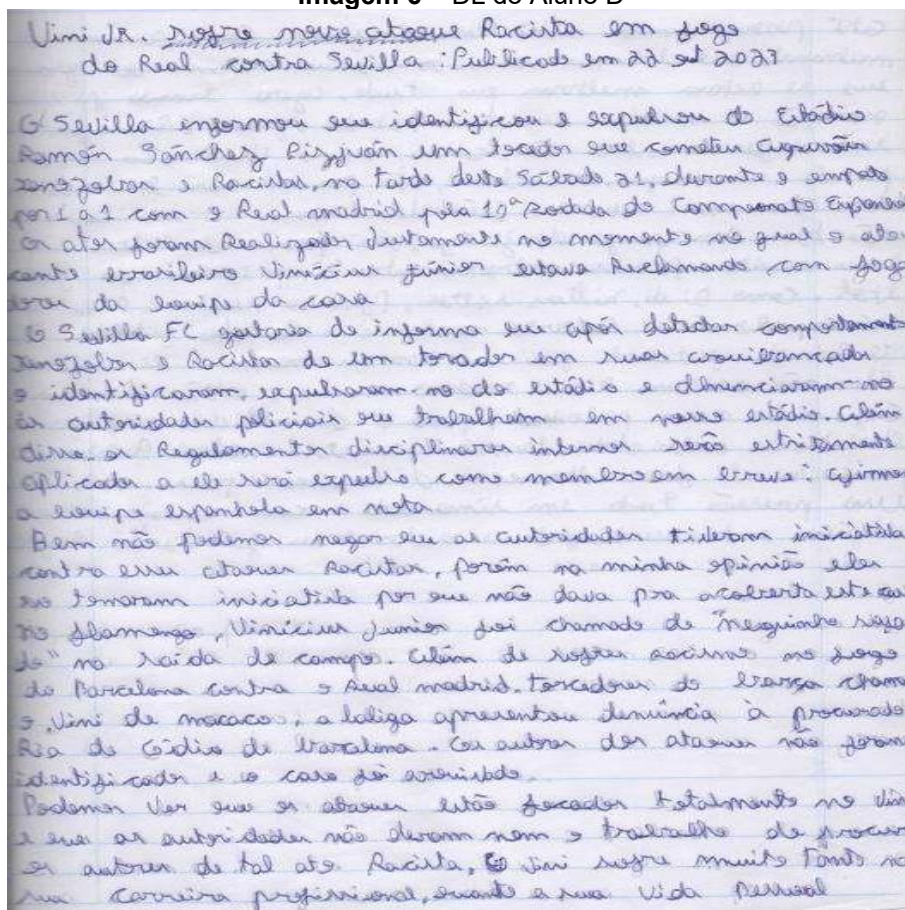 Imagem 6 – DL do Aluno D
Vini Jr. sofre novo ataque Racista em jogo
do Real contra Sevilla : Publicado em 22 out 2023
O Sevilla enformou que identificou e expulsou do Estádio
Ramón Sánchez Pizjuán um tocedor que cometeu
e Racistas, na tarde deste Sábado 21, durante o empate
por 1 a 1 com o Real madrid pela 10ª Rodada do Campeonato Espanhol
os atos foram Realizados Justamente no momento no qual o ata
cante brasileiro Vinícius Júnior estava Reclamando com joga
dores da equipe da casa
O Sevilla FC gostaria de informa que após detectar comportamento
e Racistas de um torcador em suas
o identificaram, expulsaram-no do estádio e denunciaram-no
às autoridades policiais que trabalham em nosso estádio. Além
disso, os Regulamentos disciplinares internos serão estritamente
aplicados a ele será expulso como membro em breve". afirmou
a equipe espanhola em nota
Bem não podemos negar que as autoridades tiveram iniciativa
contra esses ataques Racistas, porém na minha opinião eles
so tomaram iniciativa por que não dava pra acoberta este caso
no flamengo, Vinicius Junior foi chamado de "neguinho safa
do" na saída de campo. Além de sofrer racismo no jogo
do Barcelona contra o Real madrid. torcedores do barça chama
o Vini de macacos, a laliga apresentou denúncia à procurado
Ria de Ódio de barcelona. Os autores dos ataques não foram
identificados e o caso foi arquivado.
Podemos Ver que os ataques estão focados totalmente no Vini
e que as autoridades não deram nem o trabalho de procurar
os autores de tal ato Racista, O Vini sofre muito tanto na
sua carreira profissional, quanto a sua vida Pessoal